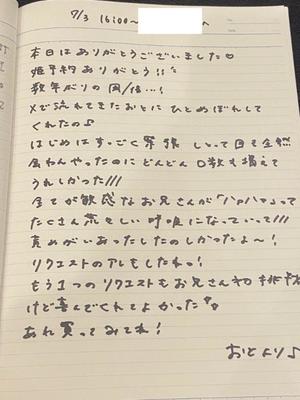 7/3 16:00〜
本日はありがとうございました♡
姫予約ありがとう!!
数年ぶりの
Xで流れてきたおとにひとめぼれして
くれたの♪
はじめはすっごく緊張しとって目も全然
合わんやったのにどんどん口数も増えて
うれしかった///
全てが敏感なお兄さんが「ハァハァ」って
たくさん荒々しい呼吸になっていって///
責めがいあったしたのしかったよ〜!
リクエストのアレもしたねっ!
もう1つのリクエストもお兄さん初挑戦
けど喜んでくれてよかった
あれ買ってみてね!
おとより♪